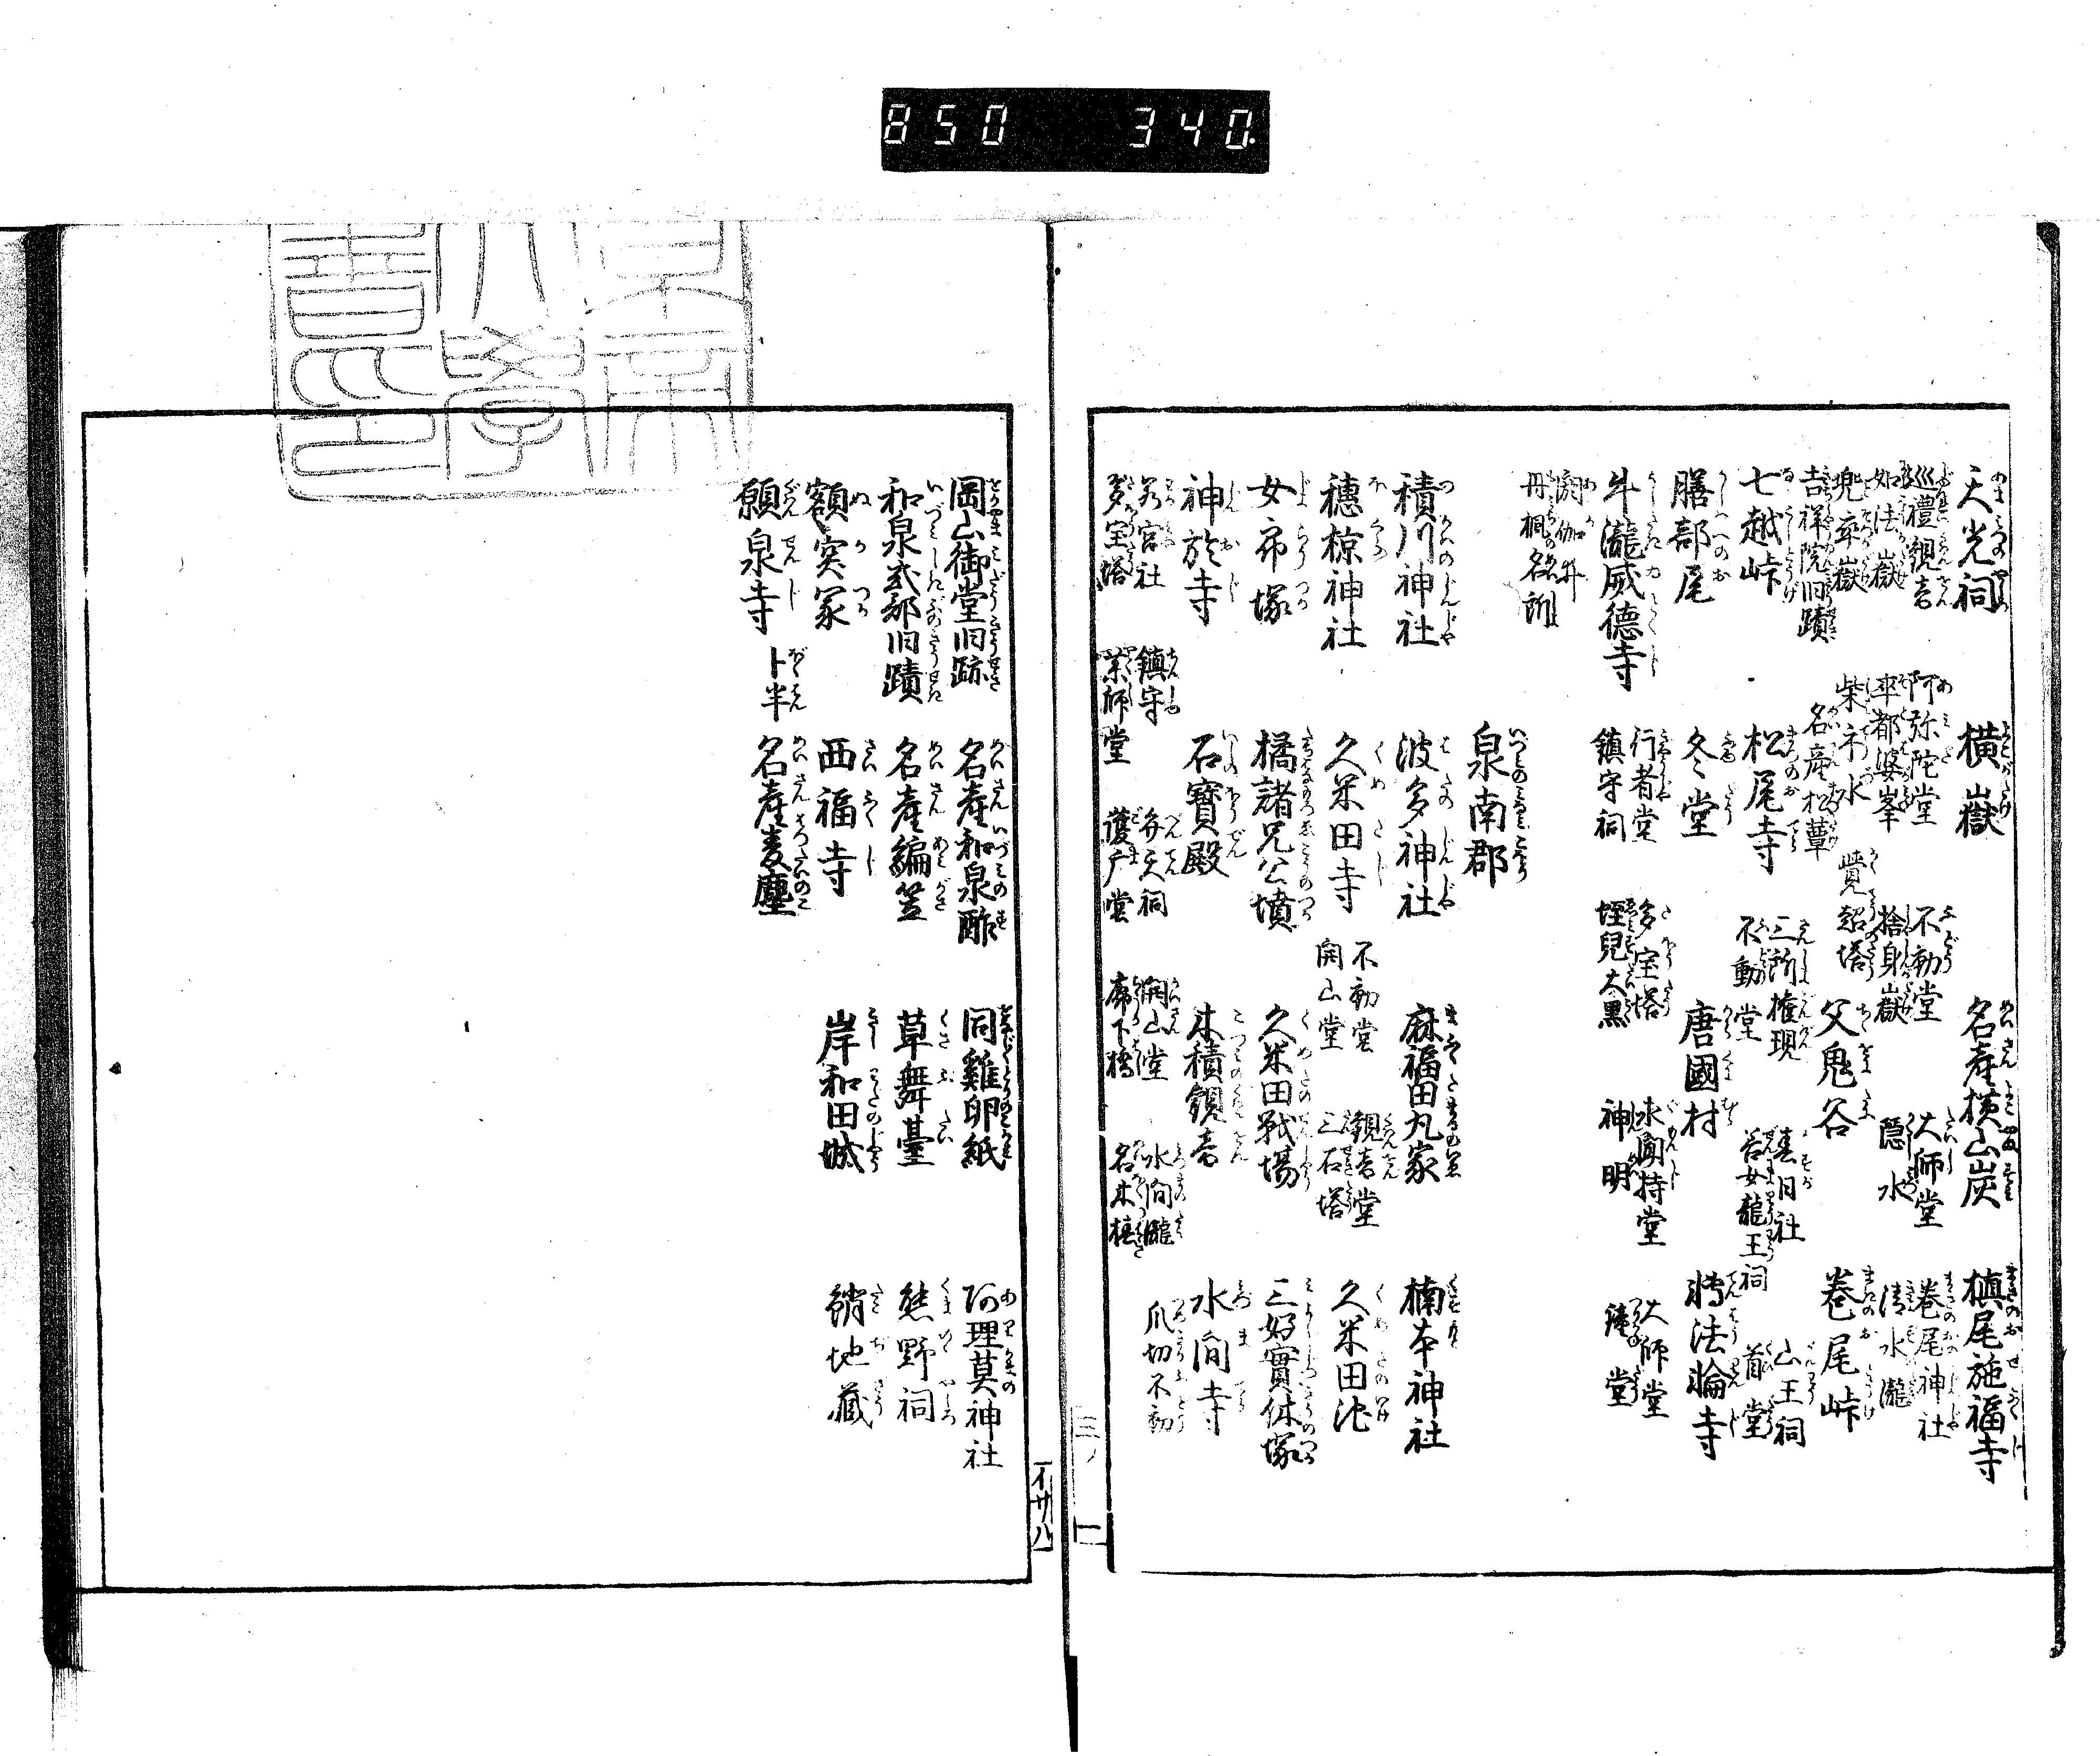 850 340
天光祠 横嶽 名産横山炭 槙尾施福寺
巡禮観音 阿弥陀堂 不動堂 大師堂 巻尾神社
如法嶽 率都婆峯 捨身嶽 隠水 清水瀧
兜率嶽 柴礼水 覚超塔 父鬼谷 巻尾峠
吉祥院旧蹟 名産松蕈 三所権現 春日社 山王祠
七越峠 松尾寺 不動堂 善女龍王祠 首堂
膳部尾 冬堂 唐國村 轉法輪寺
牛瀧威徳寺 行者堂 多宝塔 求聞持堂 大師堂
鎮守祠 蛭兒大黒 神明 鐘堂
閼伽井
丹桐名所
泉南郡
積川神社 波多神社 麻福田丸家 楠本神社
穗椋神社 久米田寺 不動堂 観音堂 久米田池
開山堂 三石塔
女帝塚 橘諸兄公墳 久米田戦場 三好實休塚
神於寺 石寶殿 木積観音 水間寺
若宮社 鎮守 弁天祠 開山堂 水間瀧 爪切不動
多宝塔 薬師堂 護广堂 廊下橋 名木椿
三ノ 一
イサハ
岡山御堂旧跡 名産和泉酢 同雞卵紙 阿理莫神社
和泉式部旧蹟 名産編笠 草舞臺 熊野祠
額突冢 西福寺 岸和田城 蛸地藏
願泉寺 卜半 名産麦塵